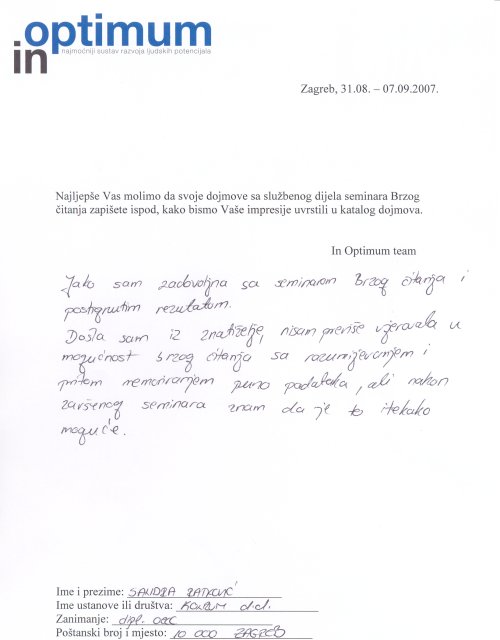 in optimum
najmoćniji sustav razvoja ljudskih potencijala
Zagreb, 31.08. – 07.09.2007.
Najljepše Vas molimo da svoje dojmove sa službenog dijela seminara Brzog
čitanja zapišete ispod, kako bismo Vaše impresije uvrstili u katalog dojmova.
In Optimum team
Jako sam zadovoljna sa seminarom Brzog čitanja i
postignutim rezultatom.
Došla sam iz znatiželje, nisam previše vjerovala u
mogućnost brzog čitanja sa razumijevanjem i
pritom memoriranjem puno podataka, ali nakon
završenog seminara znam da je to itekako
moguće.
Ime i prezime: SANDRA RATKOVIĆ
Ime ustanove ili društva: KONZUM d.d.
Zanimanje: dipl. oec
Poštanski broj i mjesto: 10 000 ZAGREB